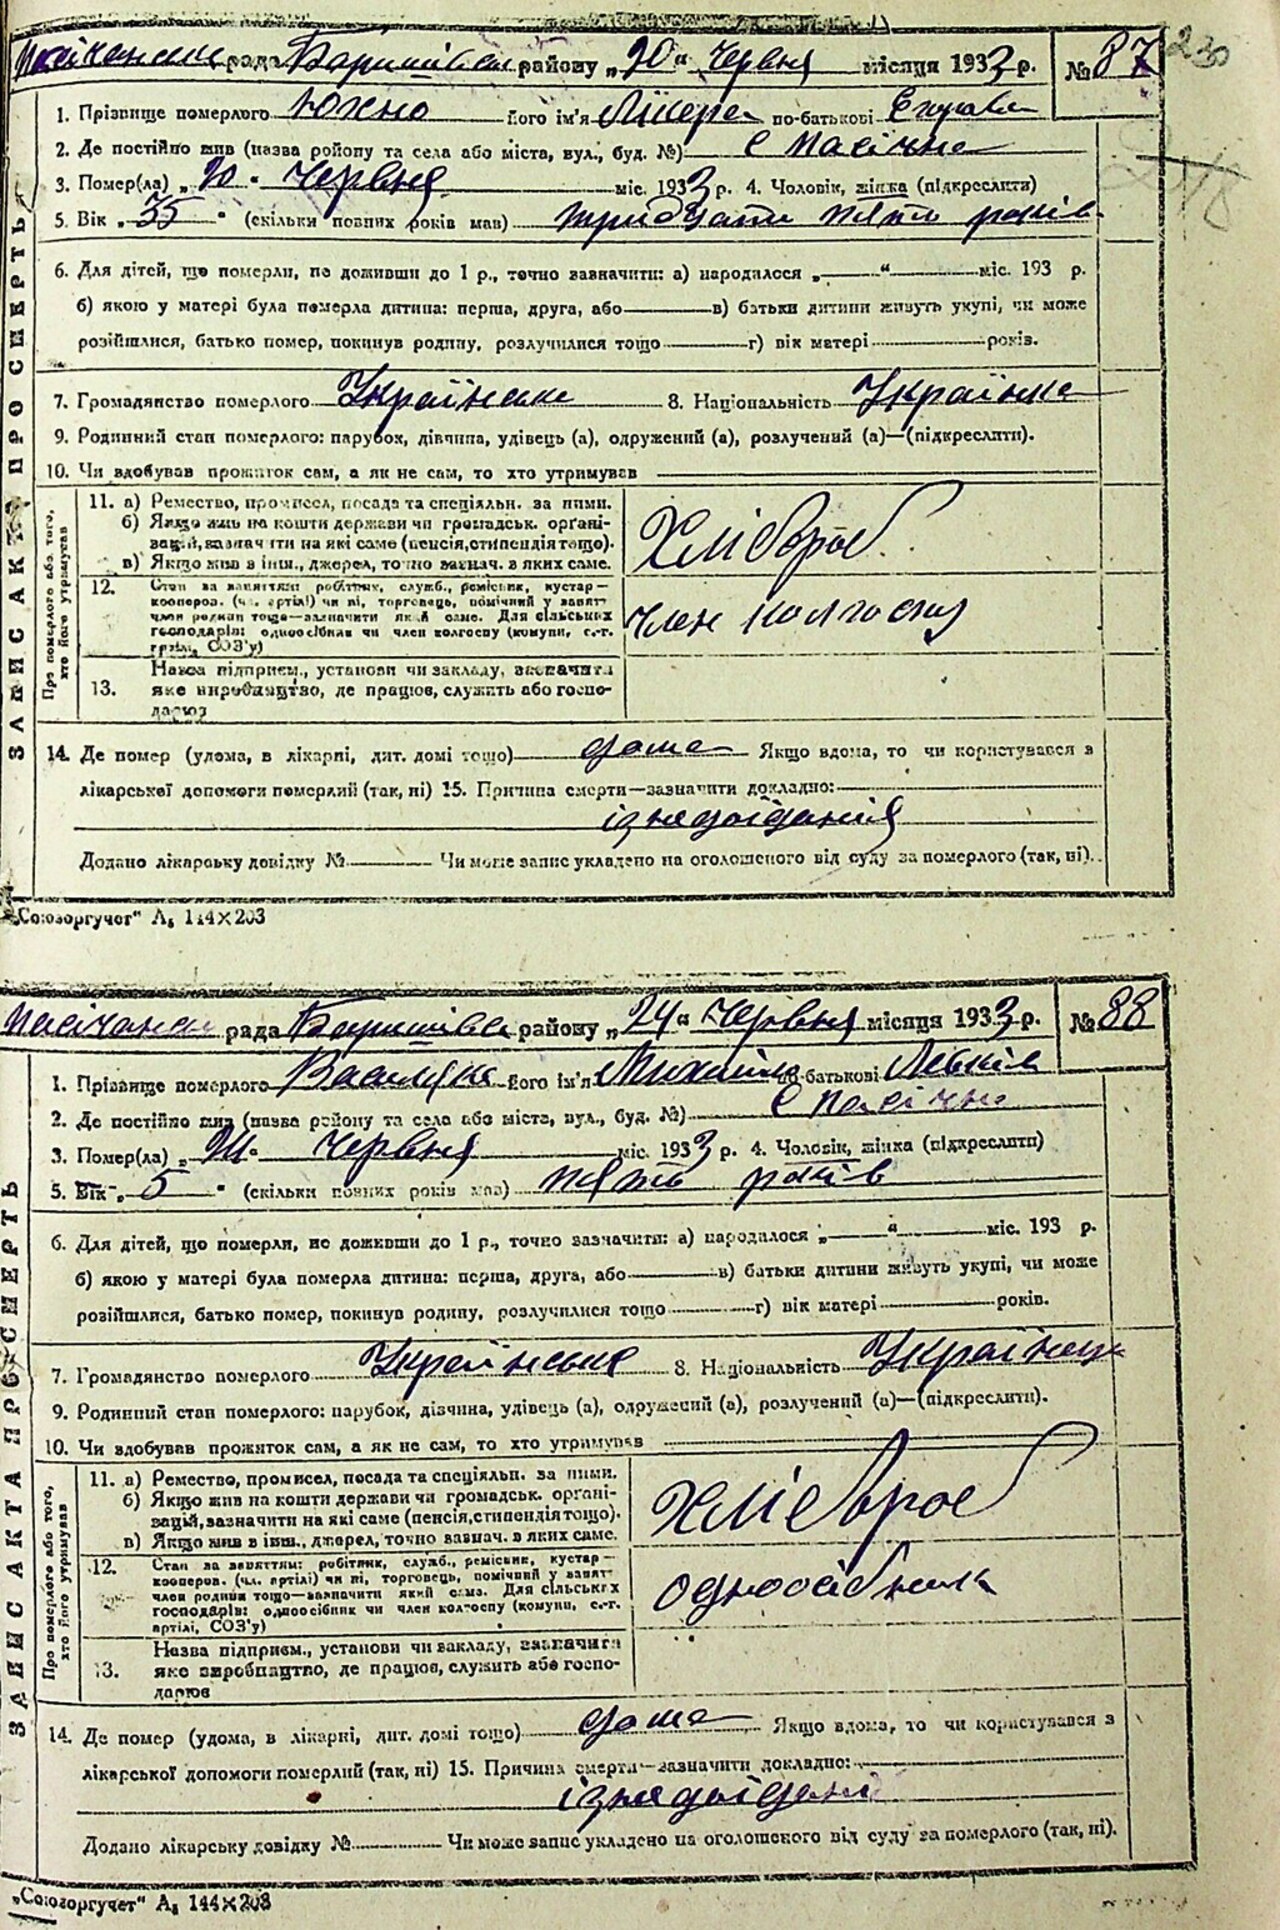 230
Пасічанськ рада Баришівськ району „20“ Червня місяця 1933 р. № 87
1. Прізвище померлого Юхно його ім'я Лікера по-батькові
2. Де постійно жив (назва ройону та села або міста, вул., буд. №) с Пасічна
3. Помер(ла) „20“ Червня міс. 1933 р. 4. Чоловік, жінка (підкреслити)
5. Вік „35“ (скільки повних років мав) тридцати пять років
6. Для дітей, що померли, не доживши до 1 р., точно зазначити: а) народалося „ “ міс. 193 р.
б) якою у матері була померла дитина: перша, друга, або в) батьки дитини живуть укупі, чи може
розійшлися, батько помер, покинув родину, розлучилися тощо г) вік матері років.
7. Громадянство померлого Українське 8. Національність Українка
9. Родинний стан померлого: парубок, дівчина, удівець (а), одружений (а), розлучений (а)—(підкреслити).
10. Чи здобував прожиток сам, а як не сам, то хто утримував
ЗАПИС АКТА ПРО СМЕРТЬ
Про померлого або того, хто його утримував
11. а) Ремество, промисел, посада та спеціяльн. за ними.
б) Якщо жив на кошти держави чи громадськ. орґані-
зацій, зазначити на які саме (пенсія, стипендія тощо).
в) Якщо жив в інш., джерел, точно зазнач. в яких саме.
Хлібороб
12. Стан за заняттям: робітник, служб., ремісник, кустар—
коопероз. (чл. артілі) чи ні, торговець, помічний у занят
член родини тощо—зазначити який саме. Для сільських
господарів: одноосібник чи член колгоспу (комуни, с.-г.
артілі, СОЗ'у)
член колгоспу
13. Назва підприєм., установи чи закладу, зазначити
яке виробництво, де працює, служить або госпо-
дарює
14. Де помер (удома, в лікарні, дит. домі тощо) дома Якщо вдома, то чи користувався з
лікарської допомоги померлий (так, ні) 15. Причина смерти—зазначити докладно:
ізнедоїдання
Додано лікарську довідку № Чи може запис укладено на оголошеного від суду за померлого (так, ні).
„Союзоргучет“ А₅ 144×203
Пасічанськ рада Баришівськ району „24“ Червня місяця 1933 р. № 88
1. Прізвище померлого його ім'я Михайло по-батькові Левків
2. Де постійно жив (назва району та села або міста, вул., буд. №) с Пасічна
3. Помер(ла) „24“ Червня міс. 1933 р. 4. Чоловік, жінка (підкреслити)
5. Вік „5“ (скільки повних років мав) пять років
6. Для дітей, що померли, не доживши до 1 р., точно зазначити: а) народалося „ “ міс. 193 р.
б) якою у матері була померла дитина: перша, друга, або в) батьки дитини живуть укупі, чи може
розійшлися, батько помер, покинув родину, розлучилися тощо г) вік матері років.
7. Громадянство померлого Українське 8. Національність Українець
9. Родинний стан померлого: парубок, дівчина, удівець (а), одружений (а), розлучений (а)—(підкреслити).
10. Чи здобував прожиток сам, а як не сам, то хто утримував
ЗАПИС АКТА ПРО СМЕРТЬ
Про померлого або того, хто його утримував
11. а) Ремество, промисел, посада та спеціяльн. за ними.
б) Якщо жив на кошти держави чи громадськ. орґані-
зацій, зазначити на які саме (пенсія, стипендія тощо).
в) Якщо жив в інш., джерел, точно зазнач. в яких саме.
Хлібороб
12. Стан за заняттям: робітник, служб., ремісник, кустар—
коопероз. (чл. артілі) чи ні, торговець, помічний у занят
член родини тощо—зазначити який саме. Для сільських
господарів: одноосібник чи член колгоспу (комуни, с.-г.
артілі, СОЗ'у)
одноосібника
13. Назва підприєм., установи чи закладу, зазначити
яке виробництво, де працює, служить або госпо-
дарює
14. Де помер (удома, в лікарні, дит. домі тощо) дома Якщо вдома, то чи користувався з
лікарської допомоги померлий (так, ні) 15. Причина смерти—зазначити докладно:
ізнедоїдані
Додано лікарську довідку № Чи може запис укладено на оголошеного від суду за померлого (так, ні).
„Союзоргучет“ А₅ 144×203